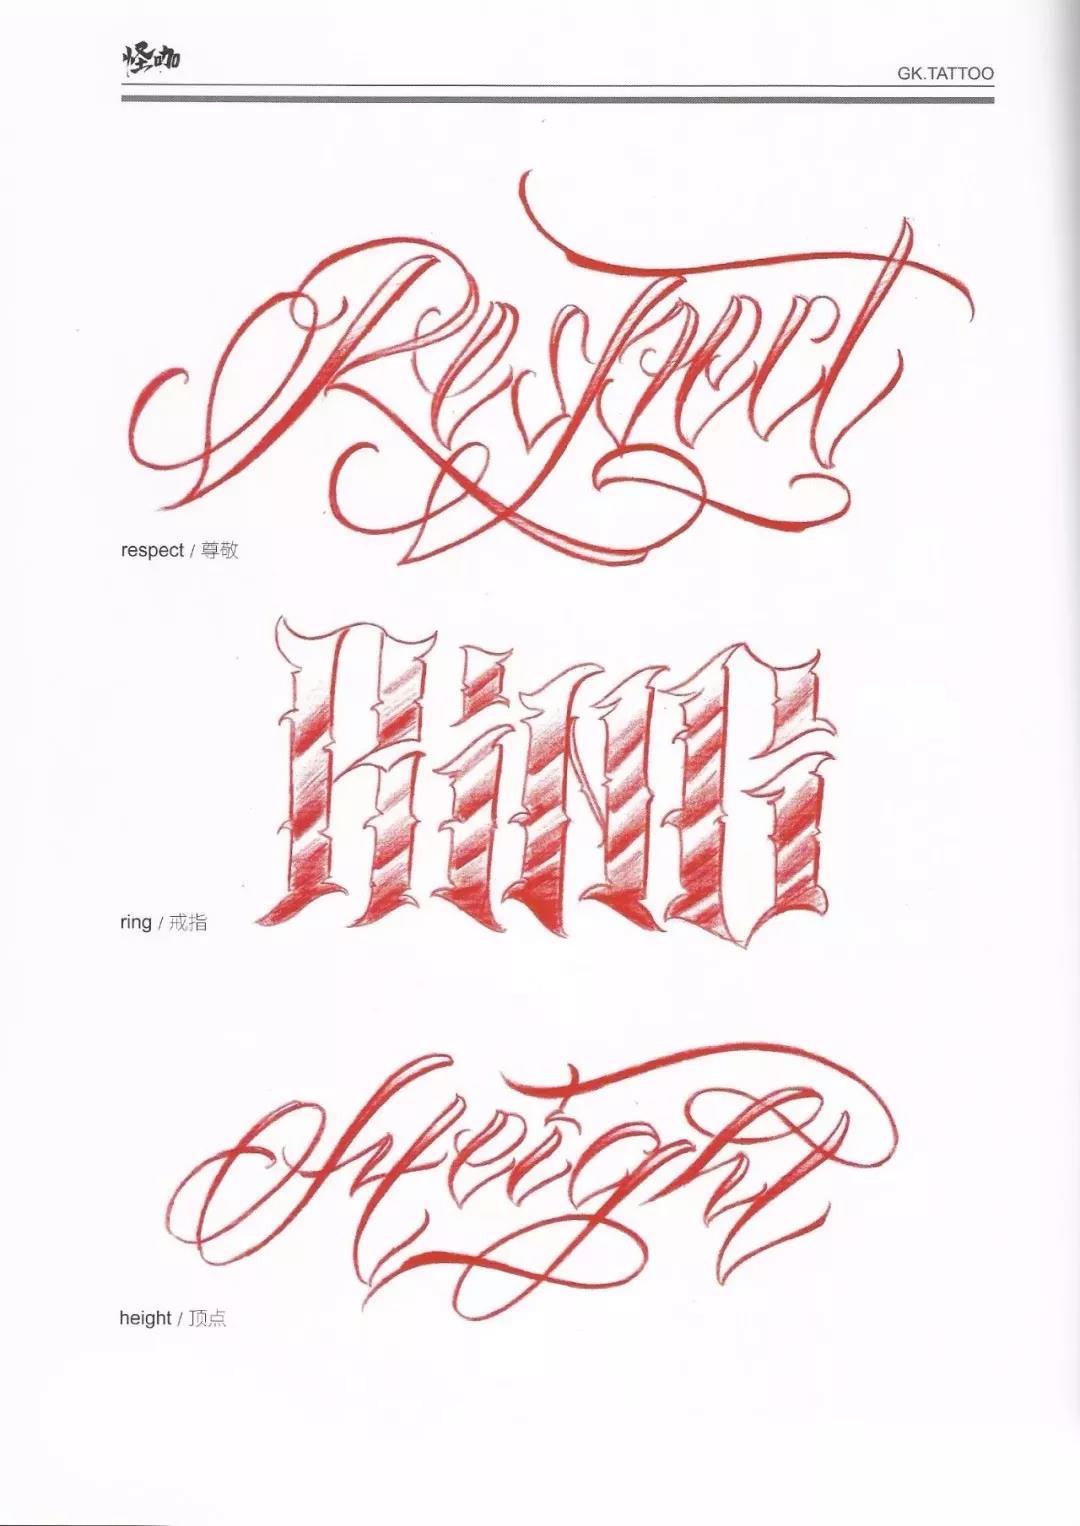 怪咖
GK.TATTOO
Respect
respect / 尊敬
RiNG
ring / 戒指
Height
height / 顶点